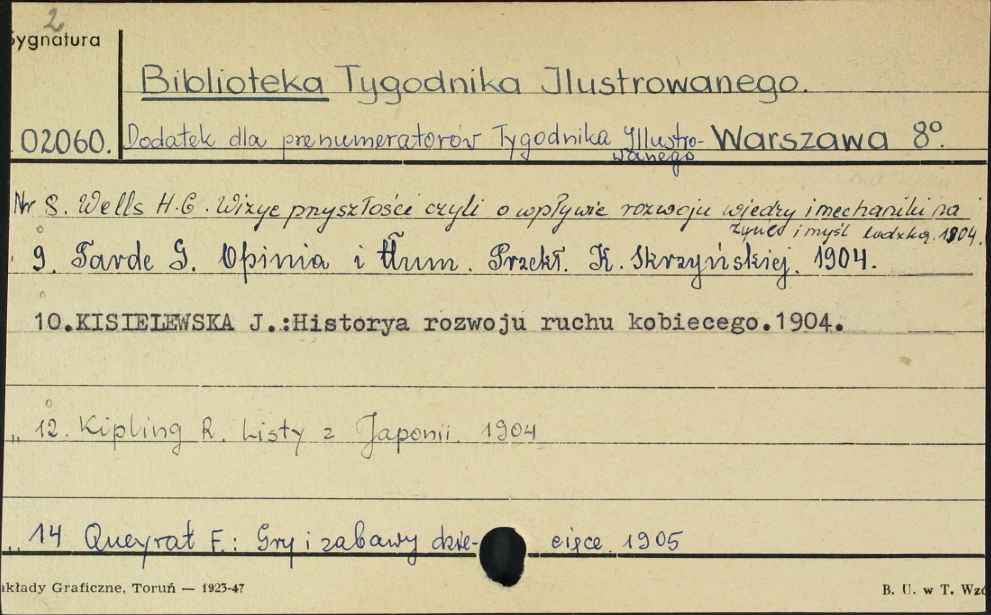 2
Sygnatura
Biblioteka Tygodnika Ilustrowanego.
02060. Dodatek dla prenumeratorów Tygodnika Illustro- Warszawa 8°.
wanego
Nr 8. Wells H.G. Wizye przyszłości czyli o wpływie rozwoju wiedzy i mechaniki na
życie i myśl ludzką. 1904.
9. Tarde G. Opinia i tłum. Przekł. K. Skrzyńskiej. 1904.
10.KISIELEWSKA J.:Historya rozwoju ruchu kobiecego.1904.
„ 12. Kipling R. Listy z Japonii. 1904
„ 14 Queyrat F.: Gry i zabawy dzie- cięce 1905
akłady Graficzne, Toruń — 1925-47
B. U. w T. Wzó